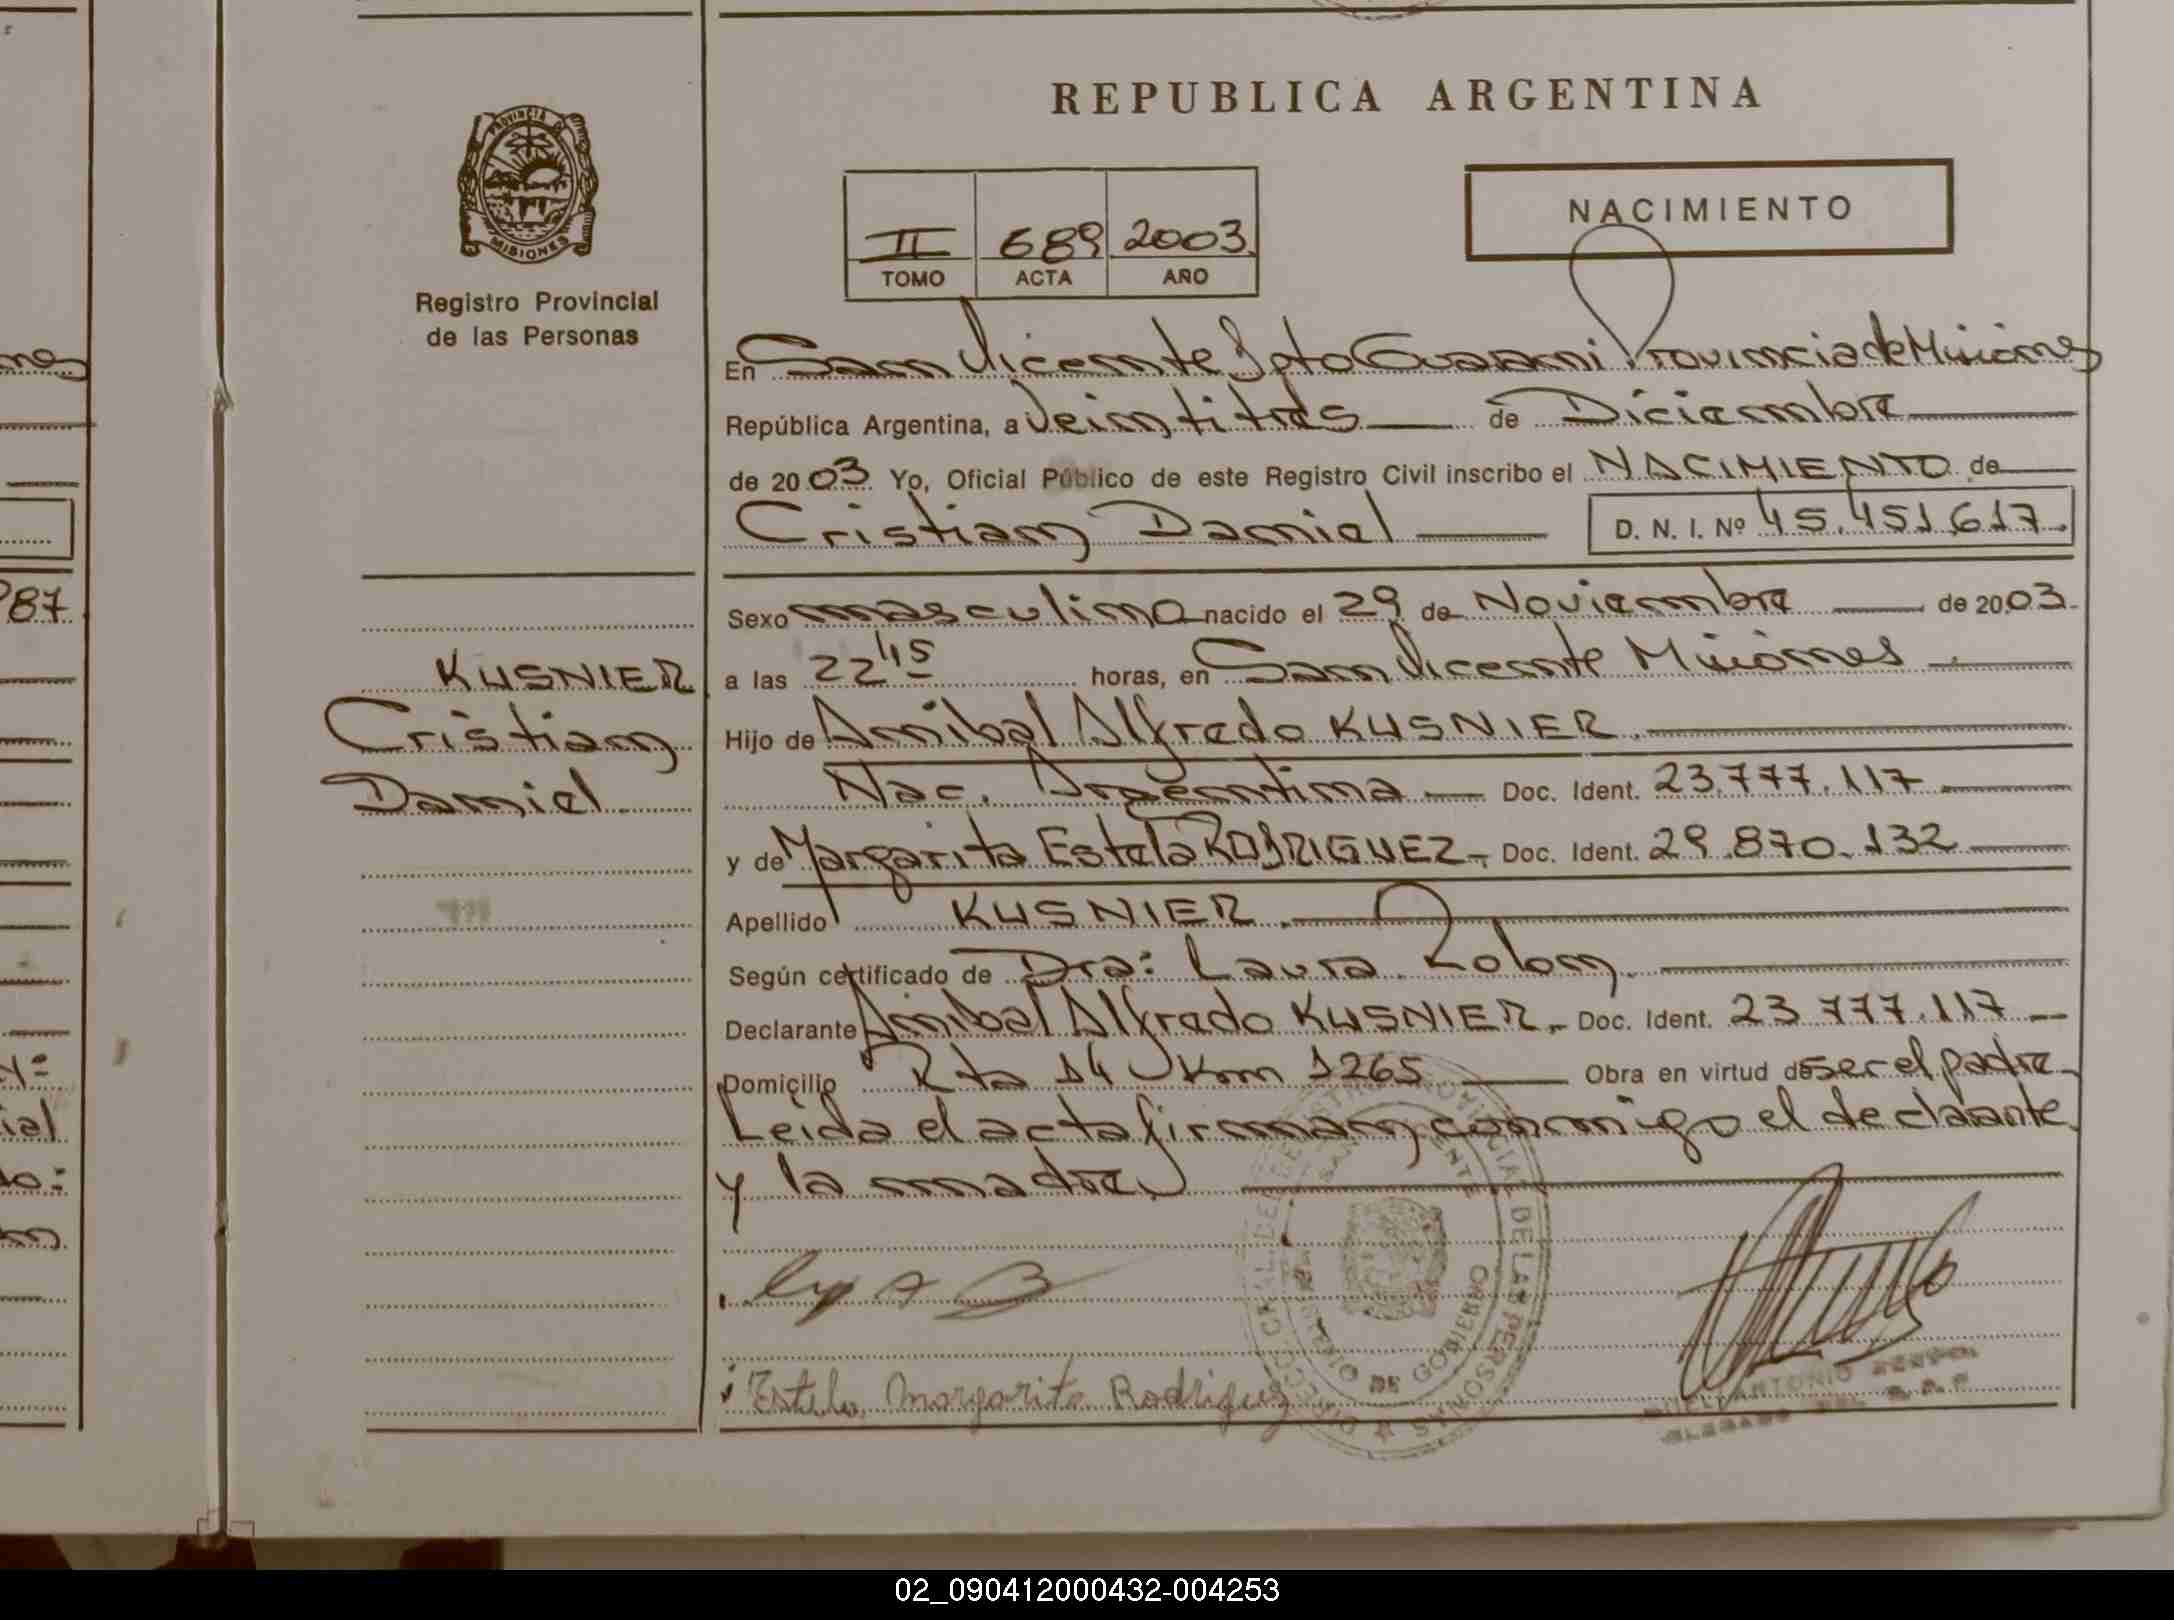 REPUBLICA ARGENTINA
PROVINCIA DE
MISIONES
Registro Provincial
de las Personas
II 689 2003
TOMO ACTA AÑO
NACIMIENTO
En San Vicente Dpto Guarani Provincia de Misiones
República Argentina, a Veintitrés de Diciembre
de 2003 Yo, Oficial Público de este Registro Civil inscribo el NACIMIENTO de
Cristian Daniel D. N. I. Nº 45.451.617.
Sexo masculino nacido el 29 de Noviembre de 2003.
KUSNIER
Cristian
Daniel
a las 22 45 horas, en San Vicente Misiones
Hijo de Anibal Alfredo KUSNIER.
Nac. Argentina Doc. Ident. 23.777.117
y de Margarita Estela RODRIGUEZ Doc. Ident. 29.870.132
Apellido KUSNIER.
Según certificado de Dra: Laura Rolon.
Declarante Anibal Alfredo KUSNIER Doc. Ident. 23 777.117
Domicilio Rta 14 Km 1265 Obra en virtud de ser el padre
Leida el acta firman conmigo el declarante
y la madre.
Estela Margarita Rodriguez
DE LAS PERSONAS
DE GOBIERNO
ANTONIO
87
02_090412000432-004253